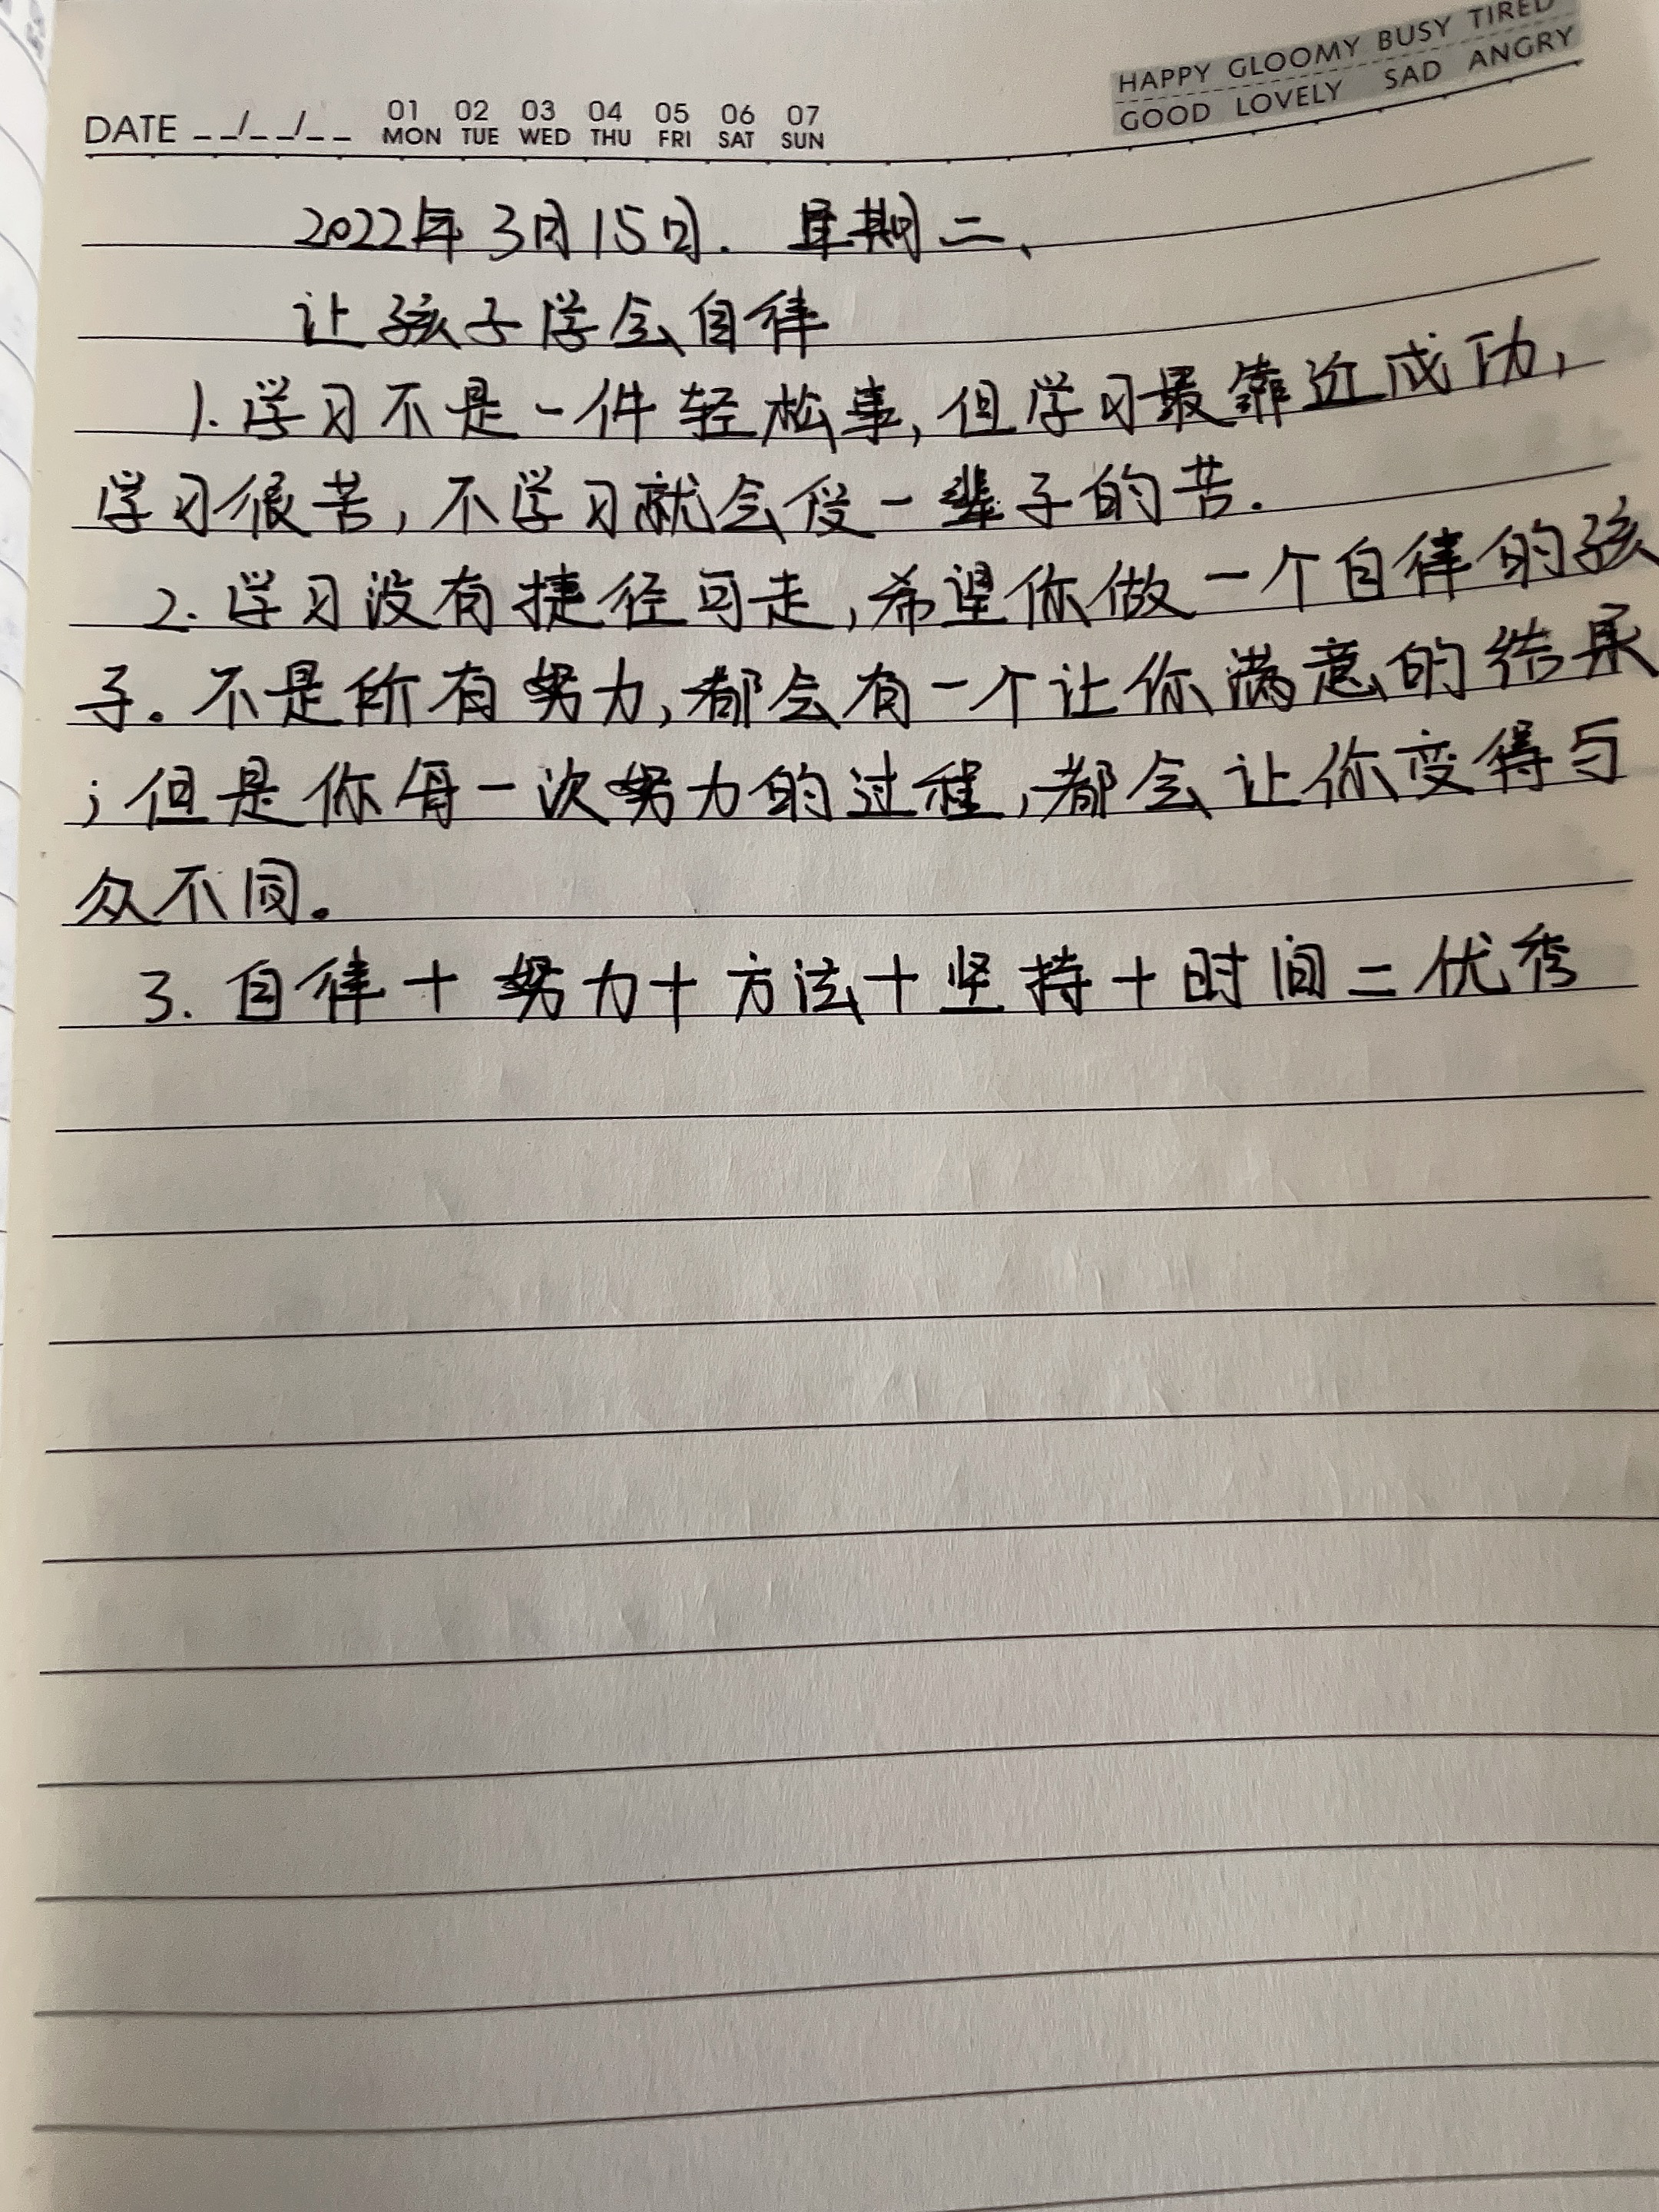 HAPPY GLOOMY BUSY TIRED
GOOD LOVELY SAD ANGRY
DATE __/__/__ 01 MON 02 TUE 03 WED 04 THU 05 FRI 06 SAT 07 SUN
2022年3月15日. 星期二、
让孩子学会自律
1. 学习不是一件轻松事,但学习最靠近成功,
学习很苦,不学习就会受一辈子的苦.
2. 学习没有捷径可走,希望你做一个自律的孩
子。不是所有努力,都会有一个让你满意的结果
;但是你每一次努力的过程,都会让你变得与
众不同。
3. 自律+努力+方法+坚持+时间=优秀